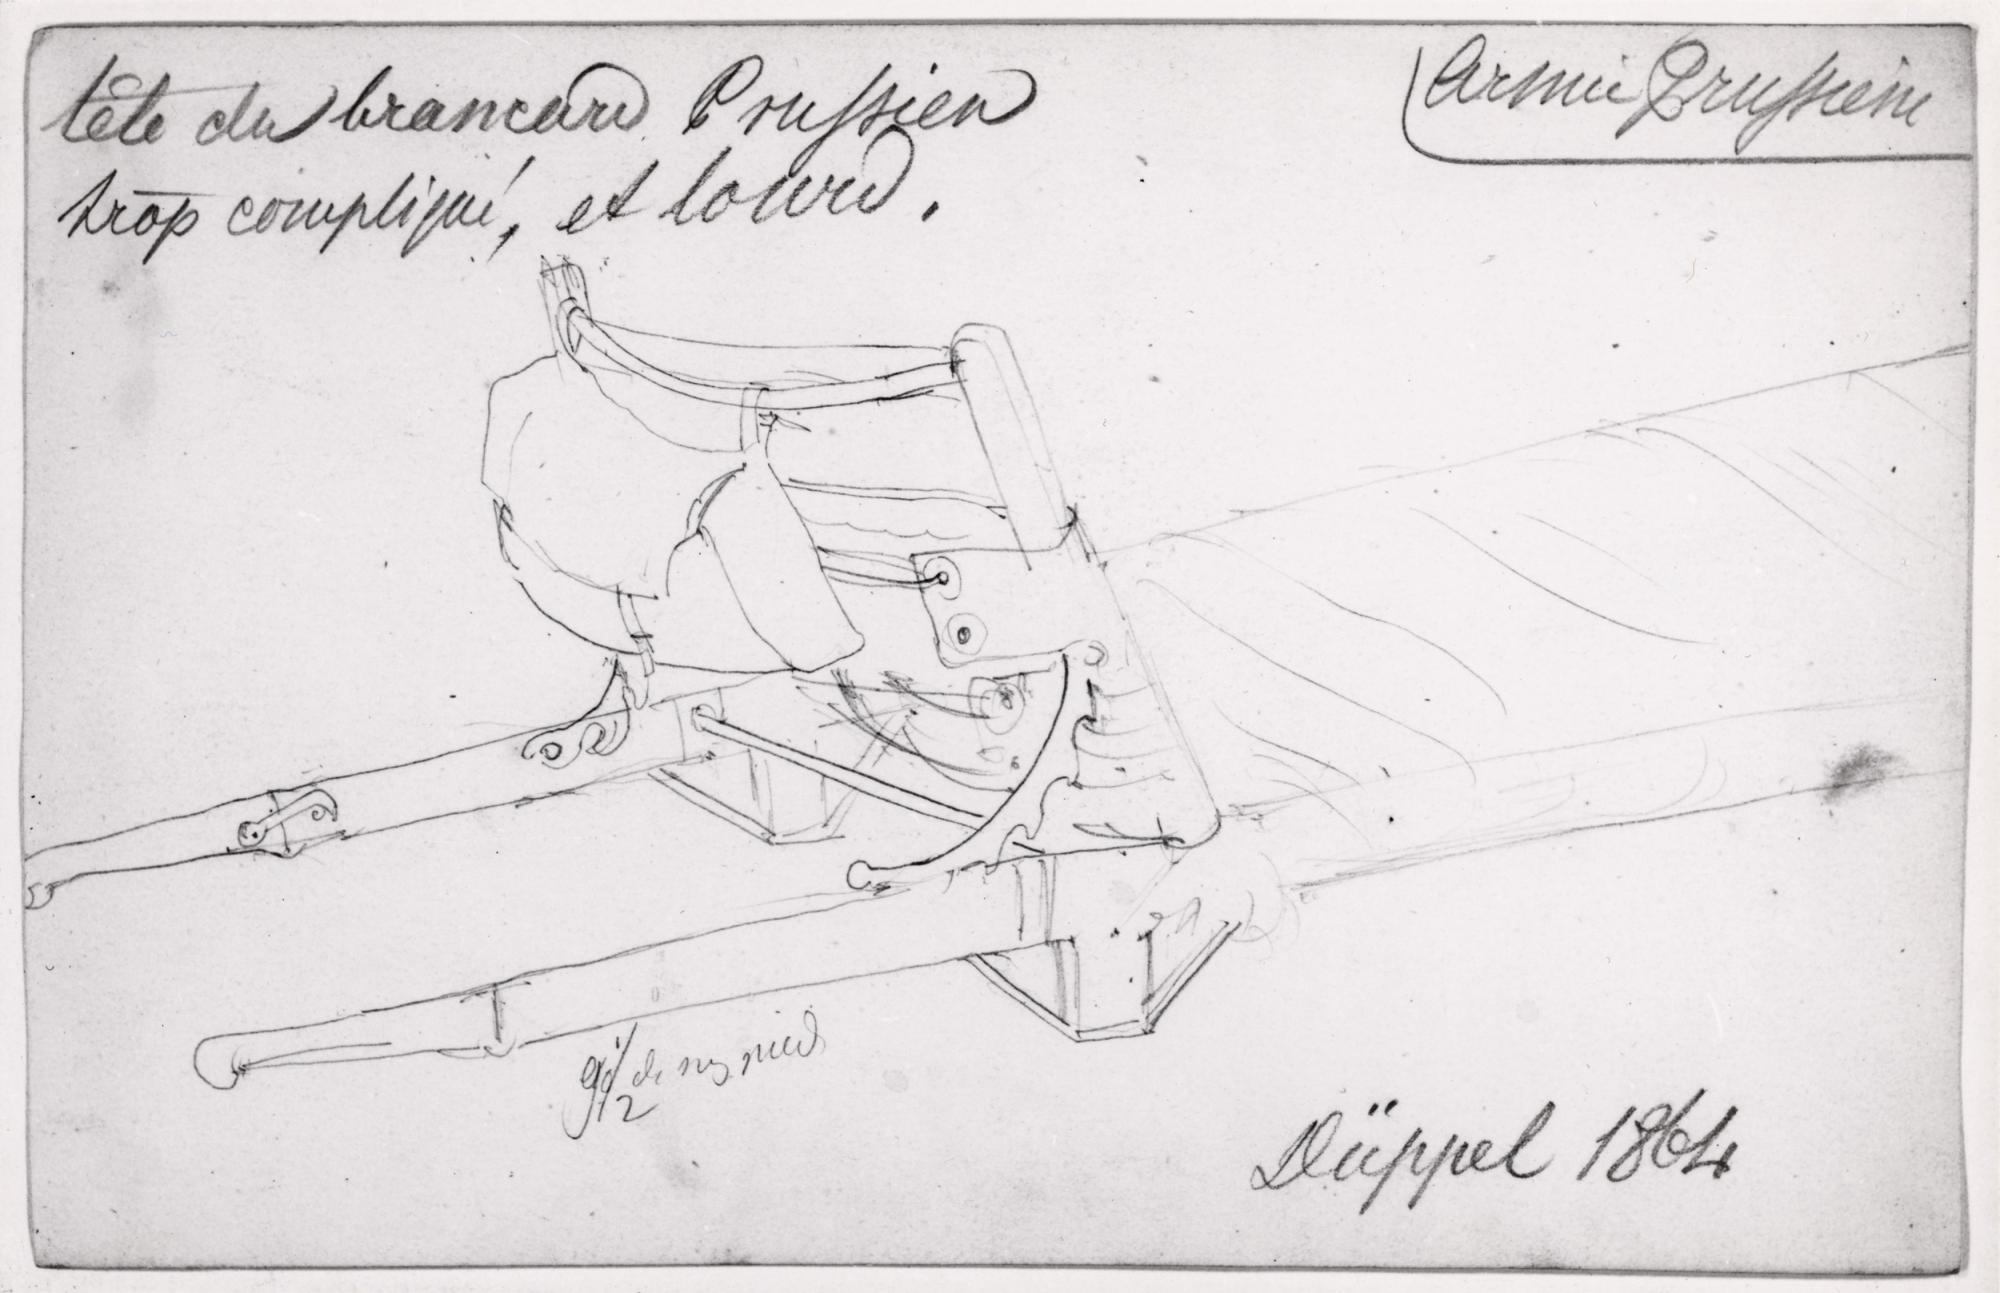 tête du brancard Prussien
trop compliqué, et lourd.
Armée Prussienne
9 1/2 de
Düppel 1864